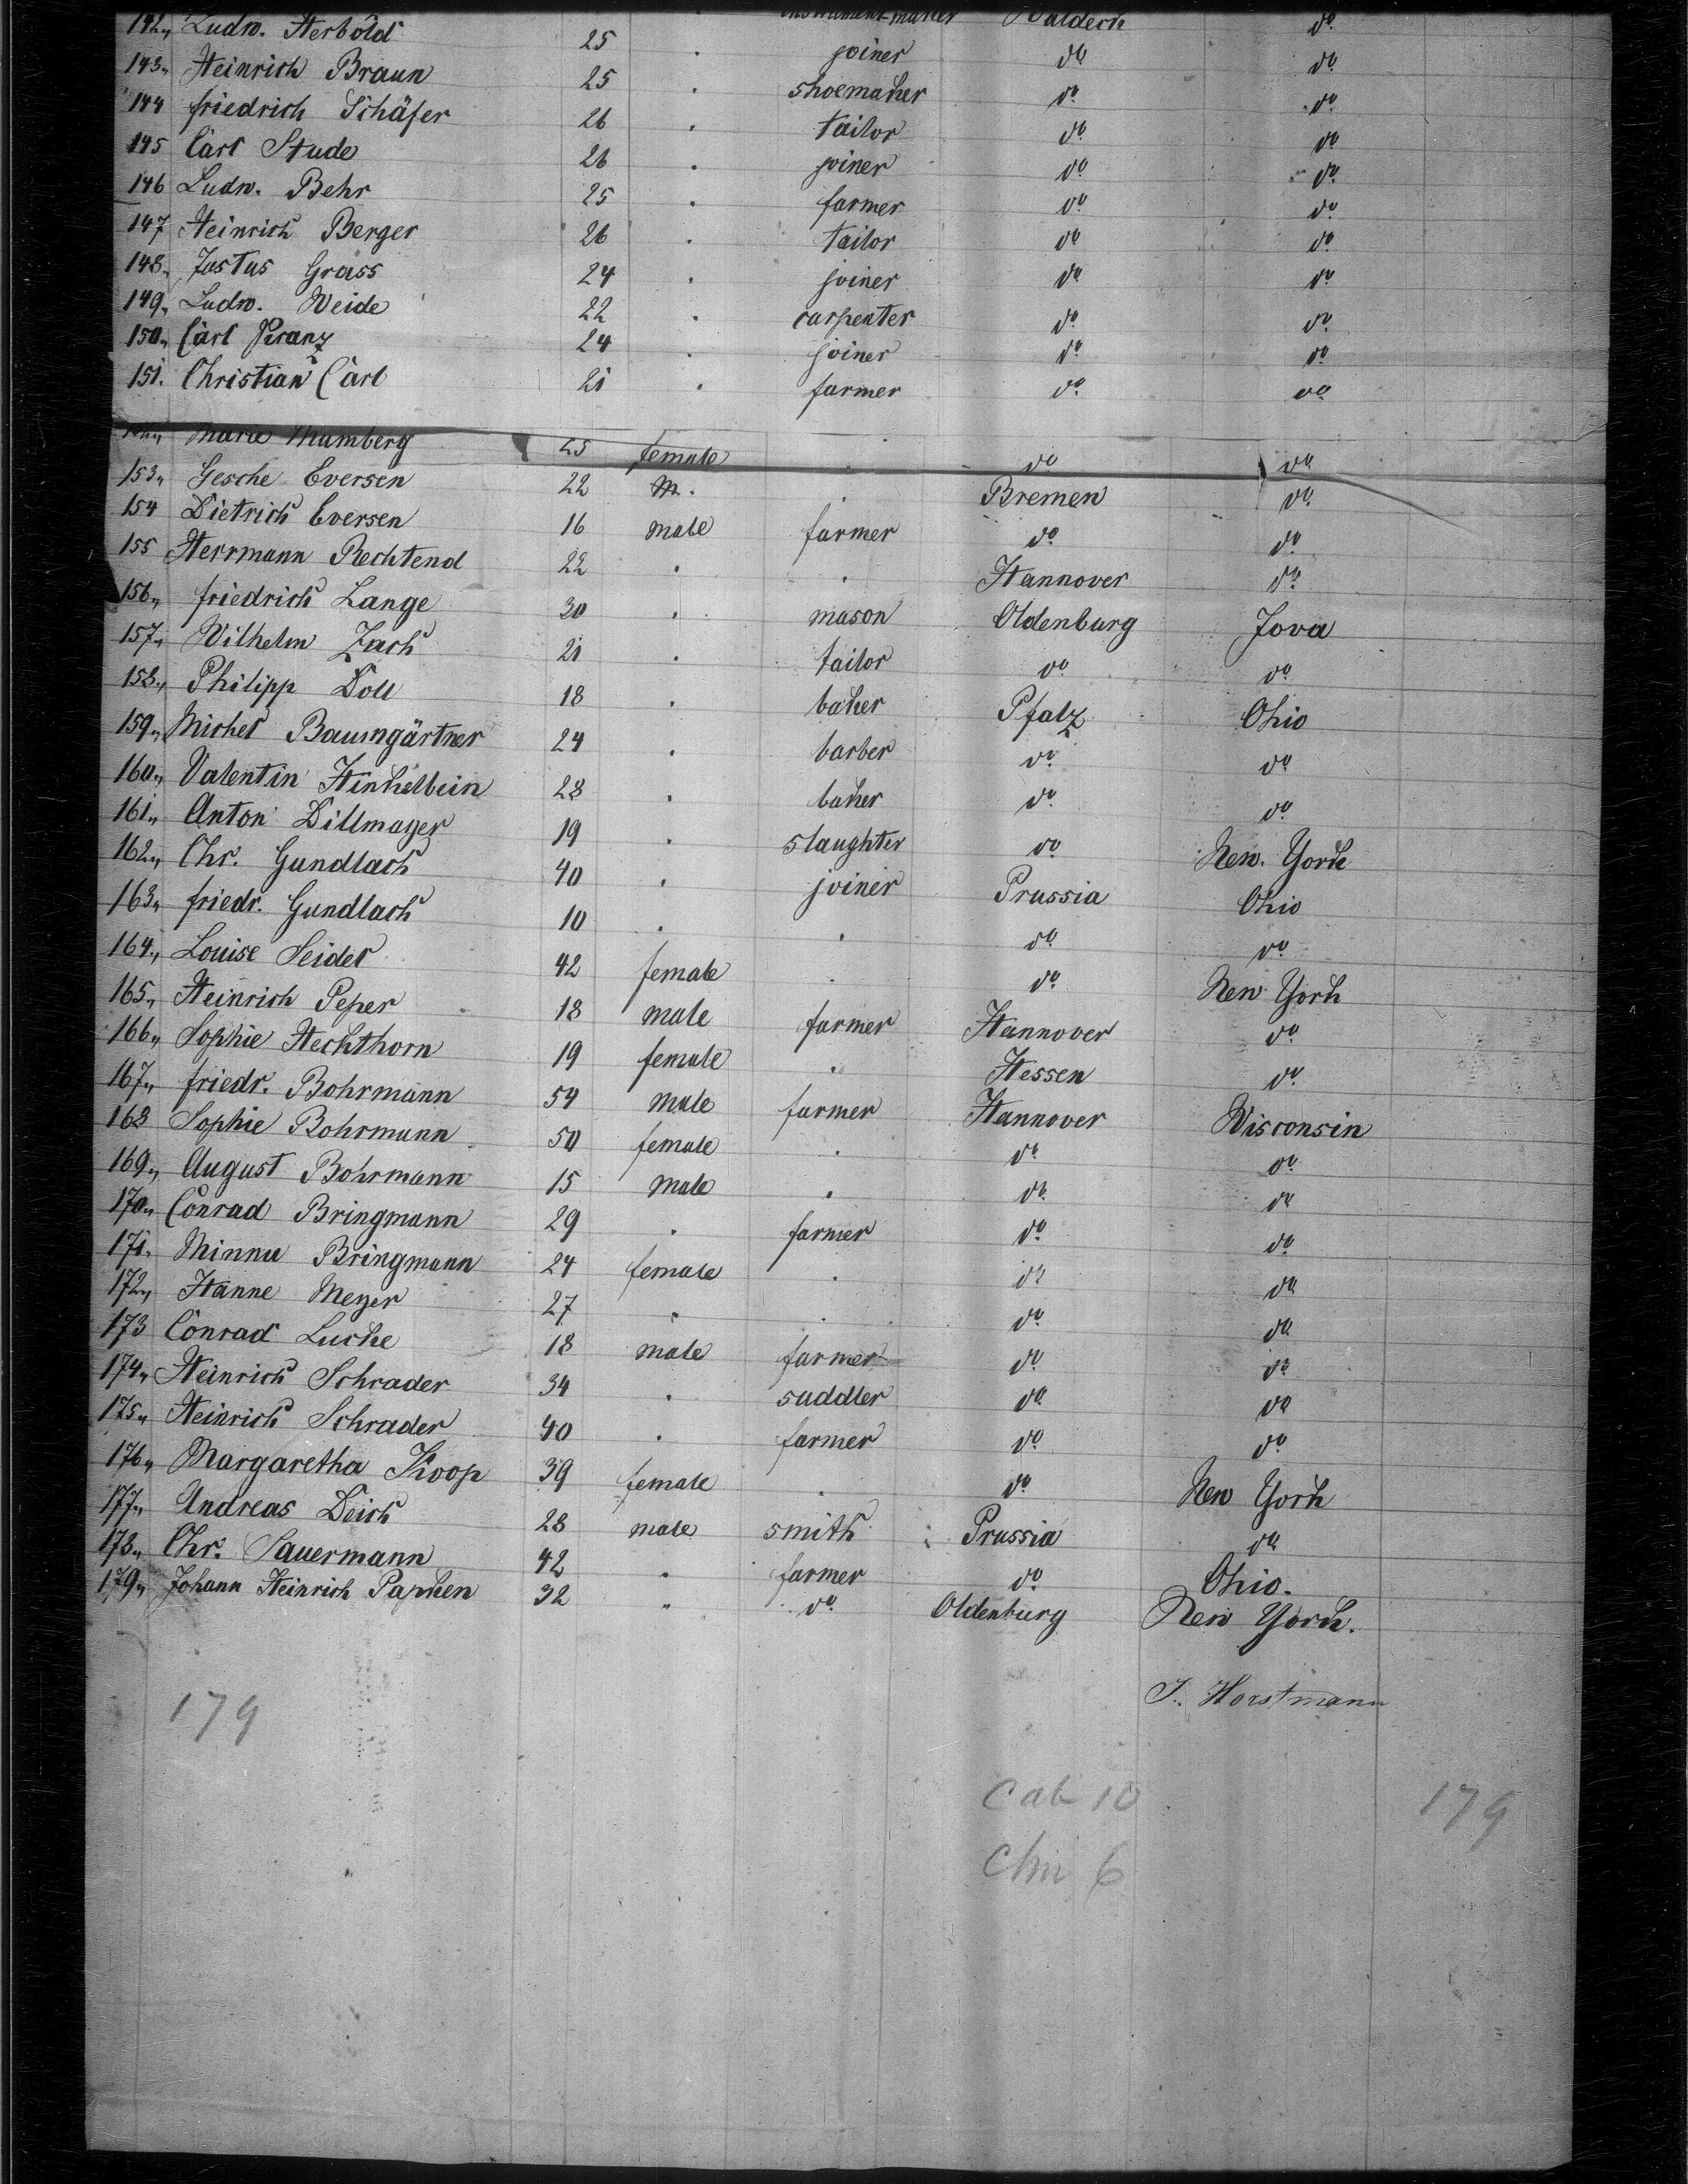 142. Ludw. Herbold 25 instrument-maker Waldeck do
143. Heinrich Braun 25 . joiner do do
144 friedrich Schäfer 26 . shoemaker do do
145 Carl Stude 26 . tailor do do
146 Ludw. Behr 25 . joiner do do
147 Heinrich Berger 26 . farmer do do
148. Justus Grass 24 . tailor do do
149. Ludw. Weide 22 . joiner do do
150. Carl Kranz 24 . carpenter do do
151. Christian Carl 21 . joiner do do
farmer do do
Marie Mumberg 25 female . do do
153. Gesche Eversen 22 m. . Bremen do
154 Dietrich Eversen 16 male farmer do do
155 Herrmann Rechtend 22 . . Hannover do
156. friedrich Lange 30 . mason Oldenburg Jova
157. Wilhelm Zach 21 . tailor do do
158. Philipp Doll 18 . baker Pfalz Ohio
159. Michel Baumgärtner 24 . barber do do
160. Valentin Hinkelbein 28 . baker do do
161. Anton Dillmayer 19 . slaughter do New. York
162. Chr. Gundlach 40 . joiner Prussia Ohio
163. friedr. Gundlach 10 . . do do
164. Louise Seidel 42 female . do New York
165. Heinrich Peper 18 male farmer Hannover do
166. Sophie Hechthorn 19 female . Hessen do
167. friedr. Bohrmann 54 male farmer Hannover Wisconsin
168 Sophie Bohrmann 50 female . do do
169. August Bohrmann 15 male . do do
170. Conrad Bringmann 29 . farmer do do
171. Minna Bringmann 24 female . do do
172. Hanne Meyer 27 " . do do
173 Conrad Lucke 18 male farmer do do
174. Heinrich Schrader 34 . saddler do do
175. Heinrich Schrader 40 . farmer do do
176. Margaretha Koop 39 female . do New York
177. Andreas Deich 28 male smith Prussia do
178. Chr. Sauermann 42 . farmer do Ohio.
179. Johann Heinrich Papken 32 " do Oldenburg New York.
J. Horstmann
179
Cab 10 179
Chi 6